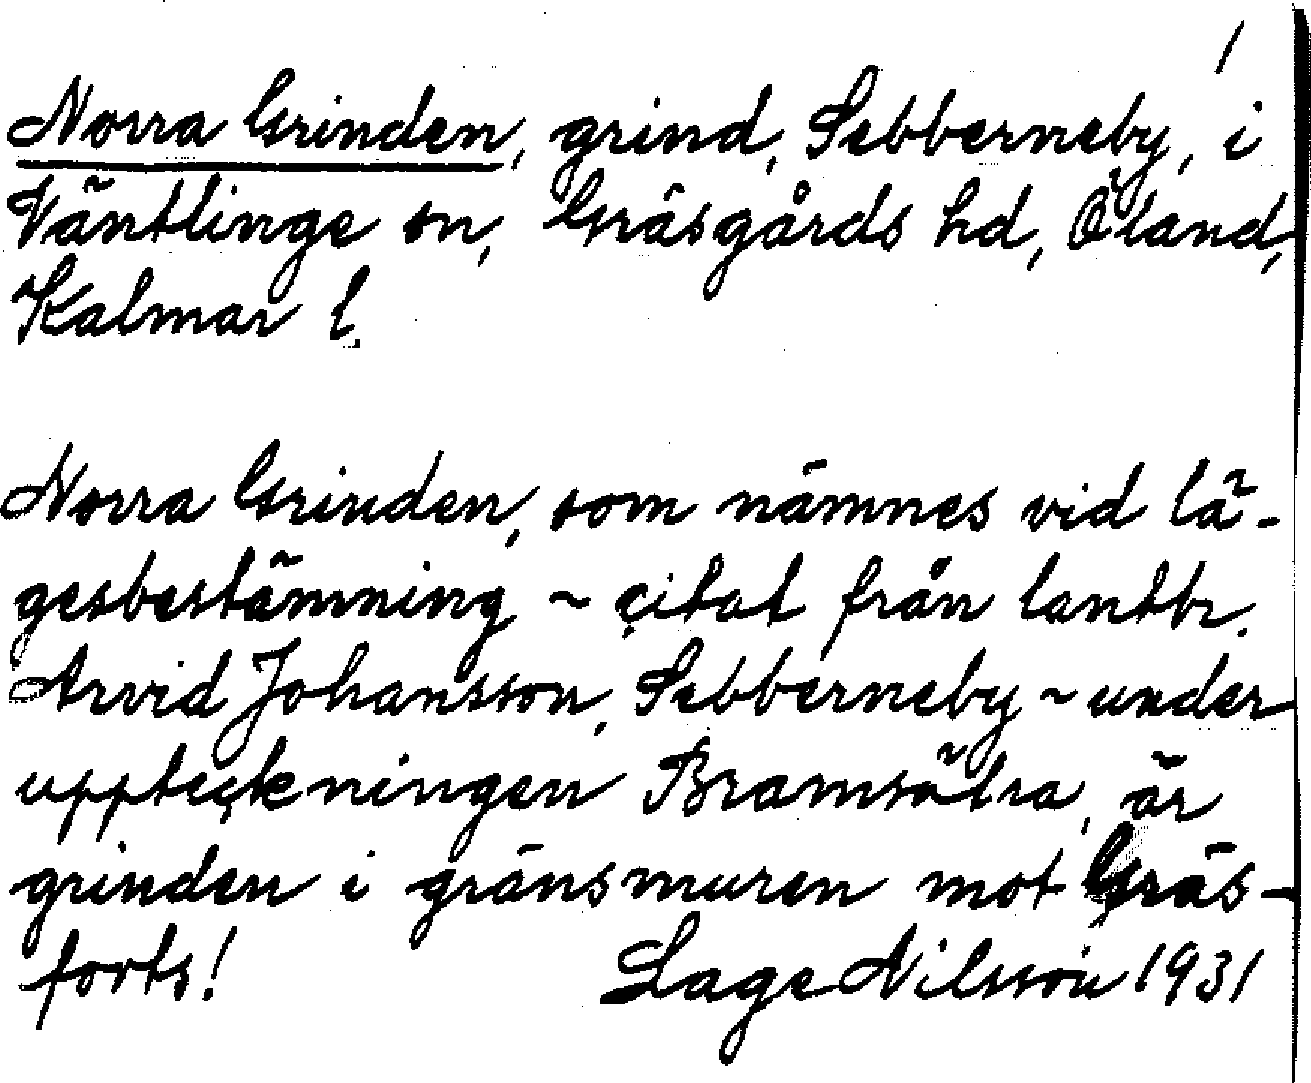 1
Norra Grinden, grind, Sebberneby, i
Väntlinge sn, Gräsgårds hd, Öland,
Kalmar l.
Norra Grinden, som nämnes vid lä-
gesbestämning ~ citat från lantbr.
Arvid Johansson, Sebberneby ~ under
uppteckningen Bramsälra, är
grinden i gränsmuren mot Gräs-
forts! Lage Nilsson 1931